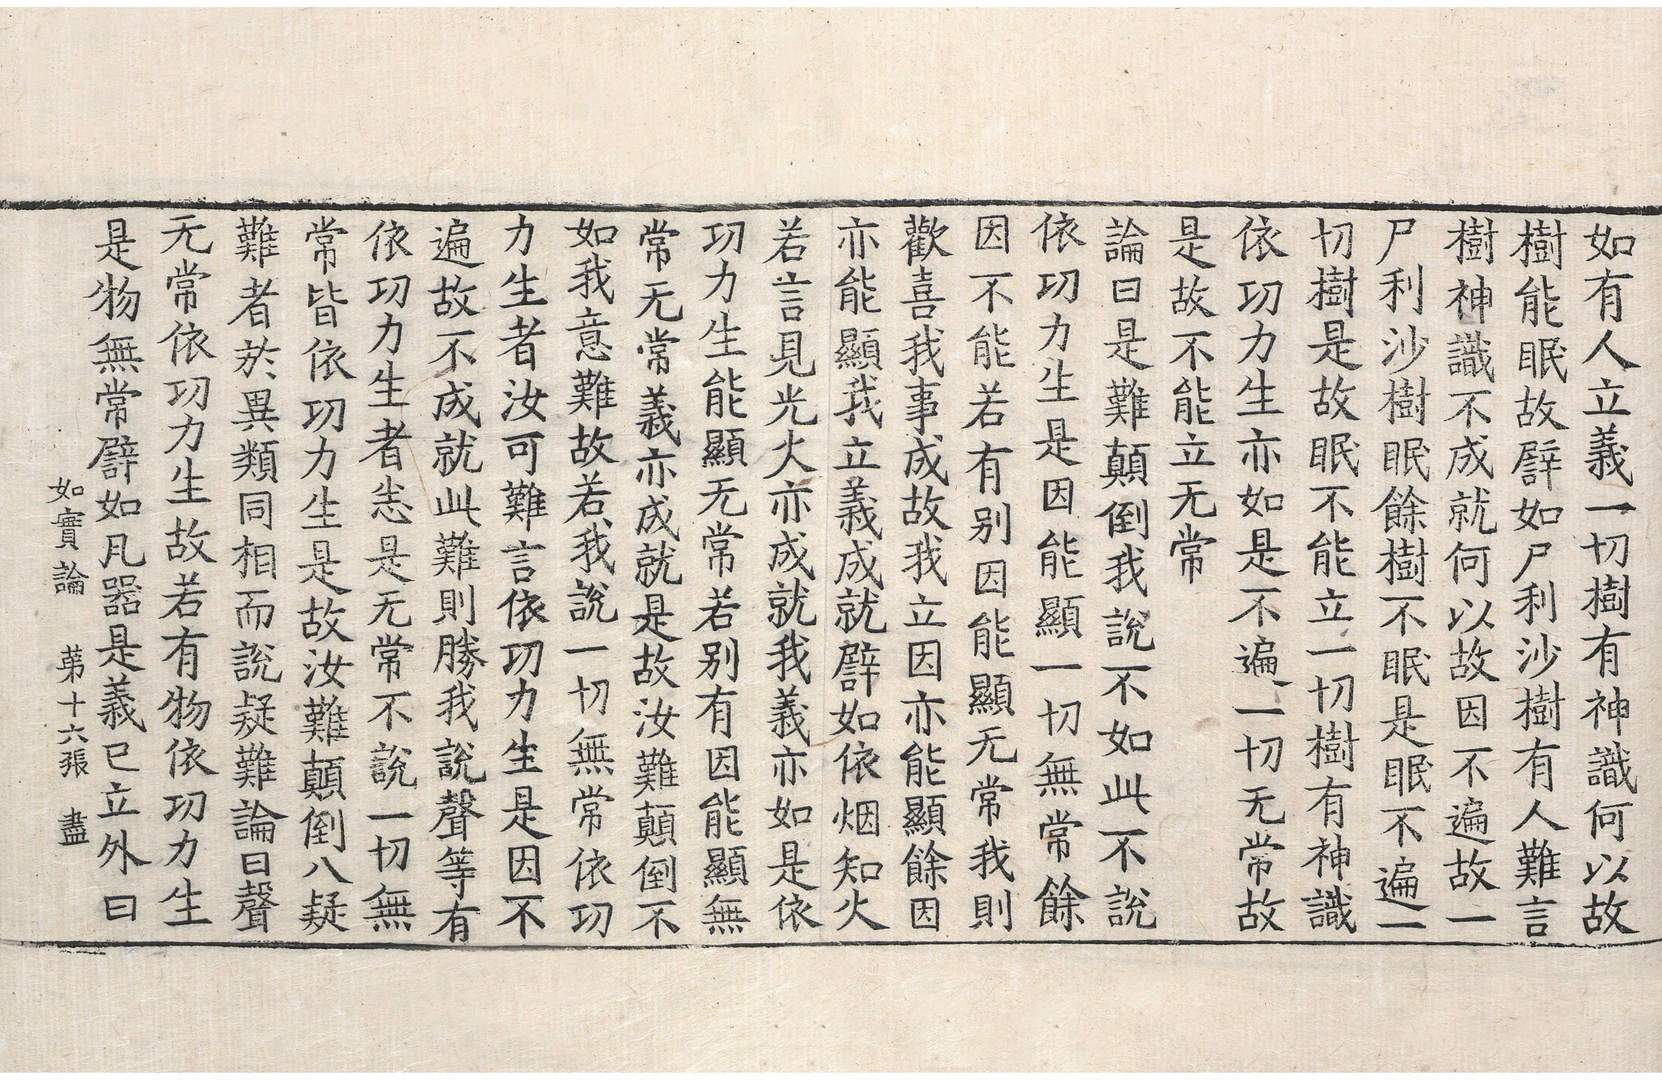 如有人立義一切樹有神識何以故
樹能眠故譬如尸利沙樹有人難言
樹神識不成就何以故因不遍故一
尸利沙樹眠餘樹不眠是眠不遍一
切樹是故眠不能立一切樹有神識
依功力生亦如是不遍一切无常故
是故不能立无常
論曰是難顛倒我說不如此不說
依功力生是因能顯一切無常餘
因不能若有別因能顯无常我則
歡喜我事成故我立因亦能顯餘因
亦能顯我立義成就譬如依烟知火
若言見光火亦成就我義亦如是依
功力生能顯无常若別有因能顯無
常无常義亦成就是故汝難顛倒不
如我意難故若我說一切無常依功
力生者汝可難言依功力生是因不
遍故不成就此難則勝我說聲等有
依功力生者悉是无常不說一切無
常皆依功力生是故汝難顛倒八疑
難者於異類同相而說疑難論曰聲
无常依功力生故若有物依功力生
是物無常譬如瓦器是義已立外曰
如實論 苐十六張 盡